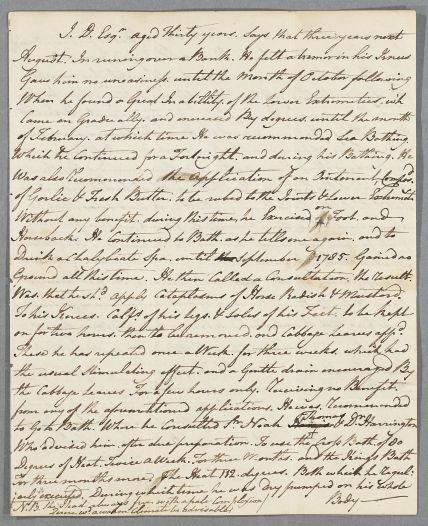 J. D. Esqr. aged Thirty years. Says that three years next
August. In running over a Bank. He felt a tremor in his Knees
Gave him no uneasiness. until the Month of October following
When he found a Great Inability. of the Lower Extremities, wh
Came on Gradeually. and encreased By degrees. until the month
of February. at which time He was recommended Sea Bathing
Which he Continued for a Fortnight, and during his Bathing. He
Was also Recommended the application of an Ointment, Compos'd
of Garlic & Fresh Butter. to be rubed to the Joints & Lower Extremities
Without any benefit. during this time, he Exercised on Foot, and
Horseback. He Continued to Bath. as he tells one again, and to
Drink a Chalybiate Spa. until September 1785. Gained no
Ground all this time. He then Called a Consultation. the Result
Was. that he shd. apply Cataplasms of Horse Radish & Mustard.
To his Knees. Calfs of his legs. & Soles of his Feet. to be Kept
on for two hours, then to be removed. and Cabbage leaves appd.
These he has repeated once a Week. for three weeks. which had
the usual Stimulating effect. and a Gentle drain encouraged By
the Cabbage leaves For a few hours only. Receiving no Benefit
from any of the aforementioned applications. He was. Recommended
to Go to Bath. When he Consulted Sr. Noah Thomas & Dr. Harrington
Who advised him. after due preparation. To use the Cross Bath. of 80
Degrees of Heat. Twice a Week. For three Months. and the Kings Bath
For three months more. The Heat 112. degrees. Both which he Regul:
:arly executed. During which time he was dry pumped on his Whole
Body
N.B. He had always from with a pale Complexion